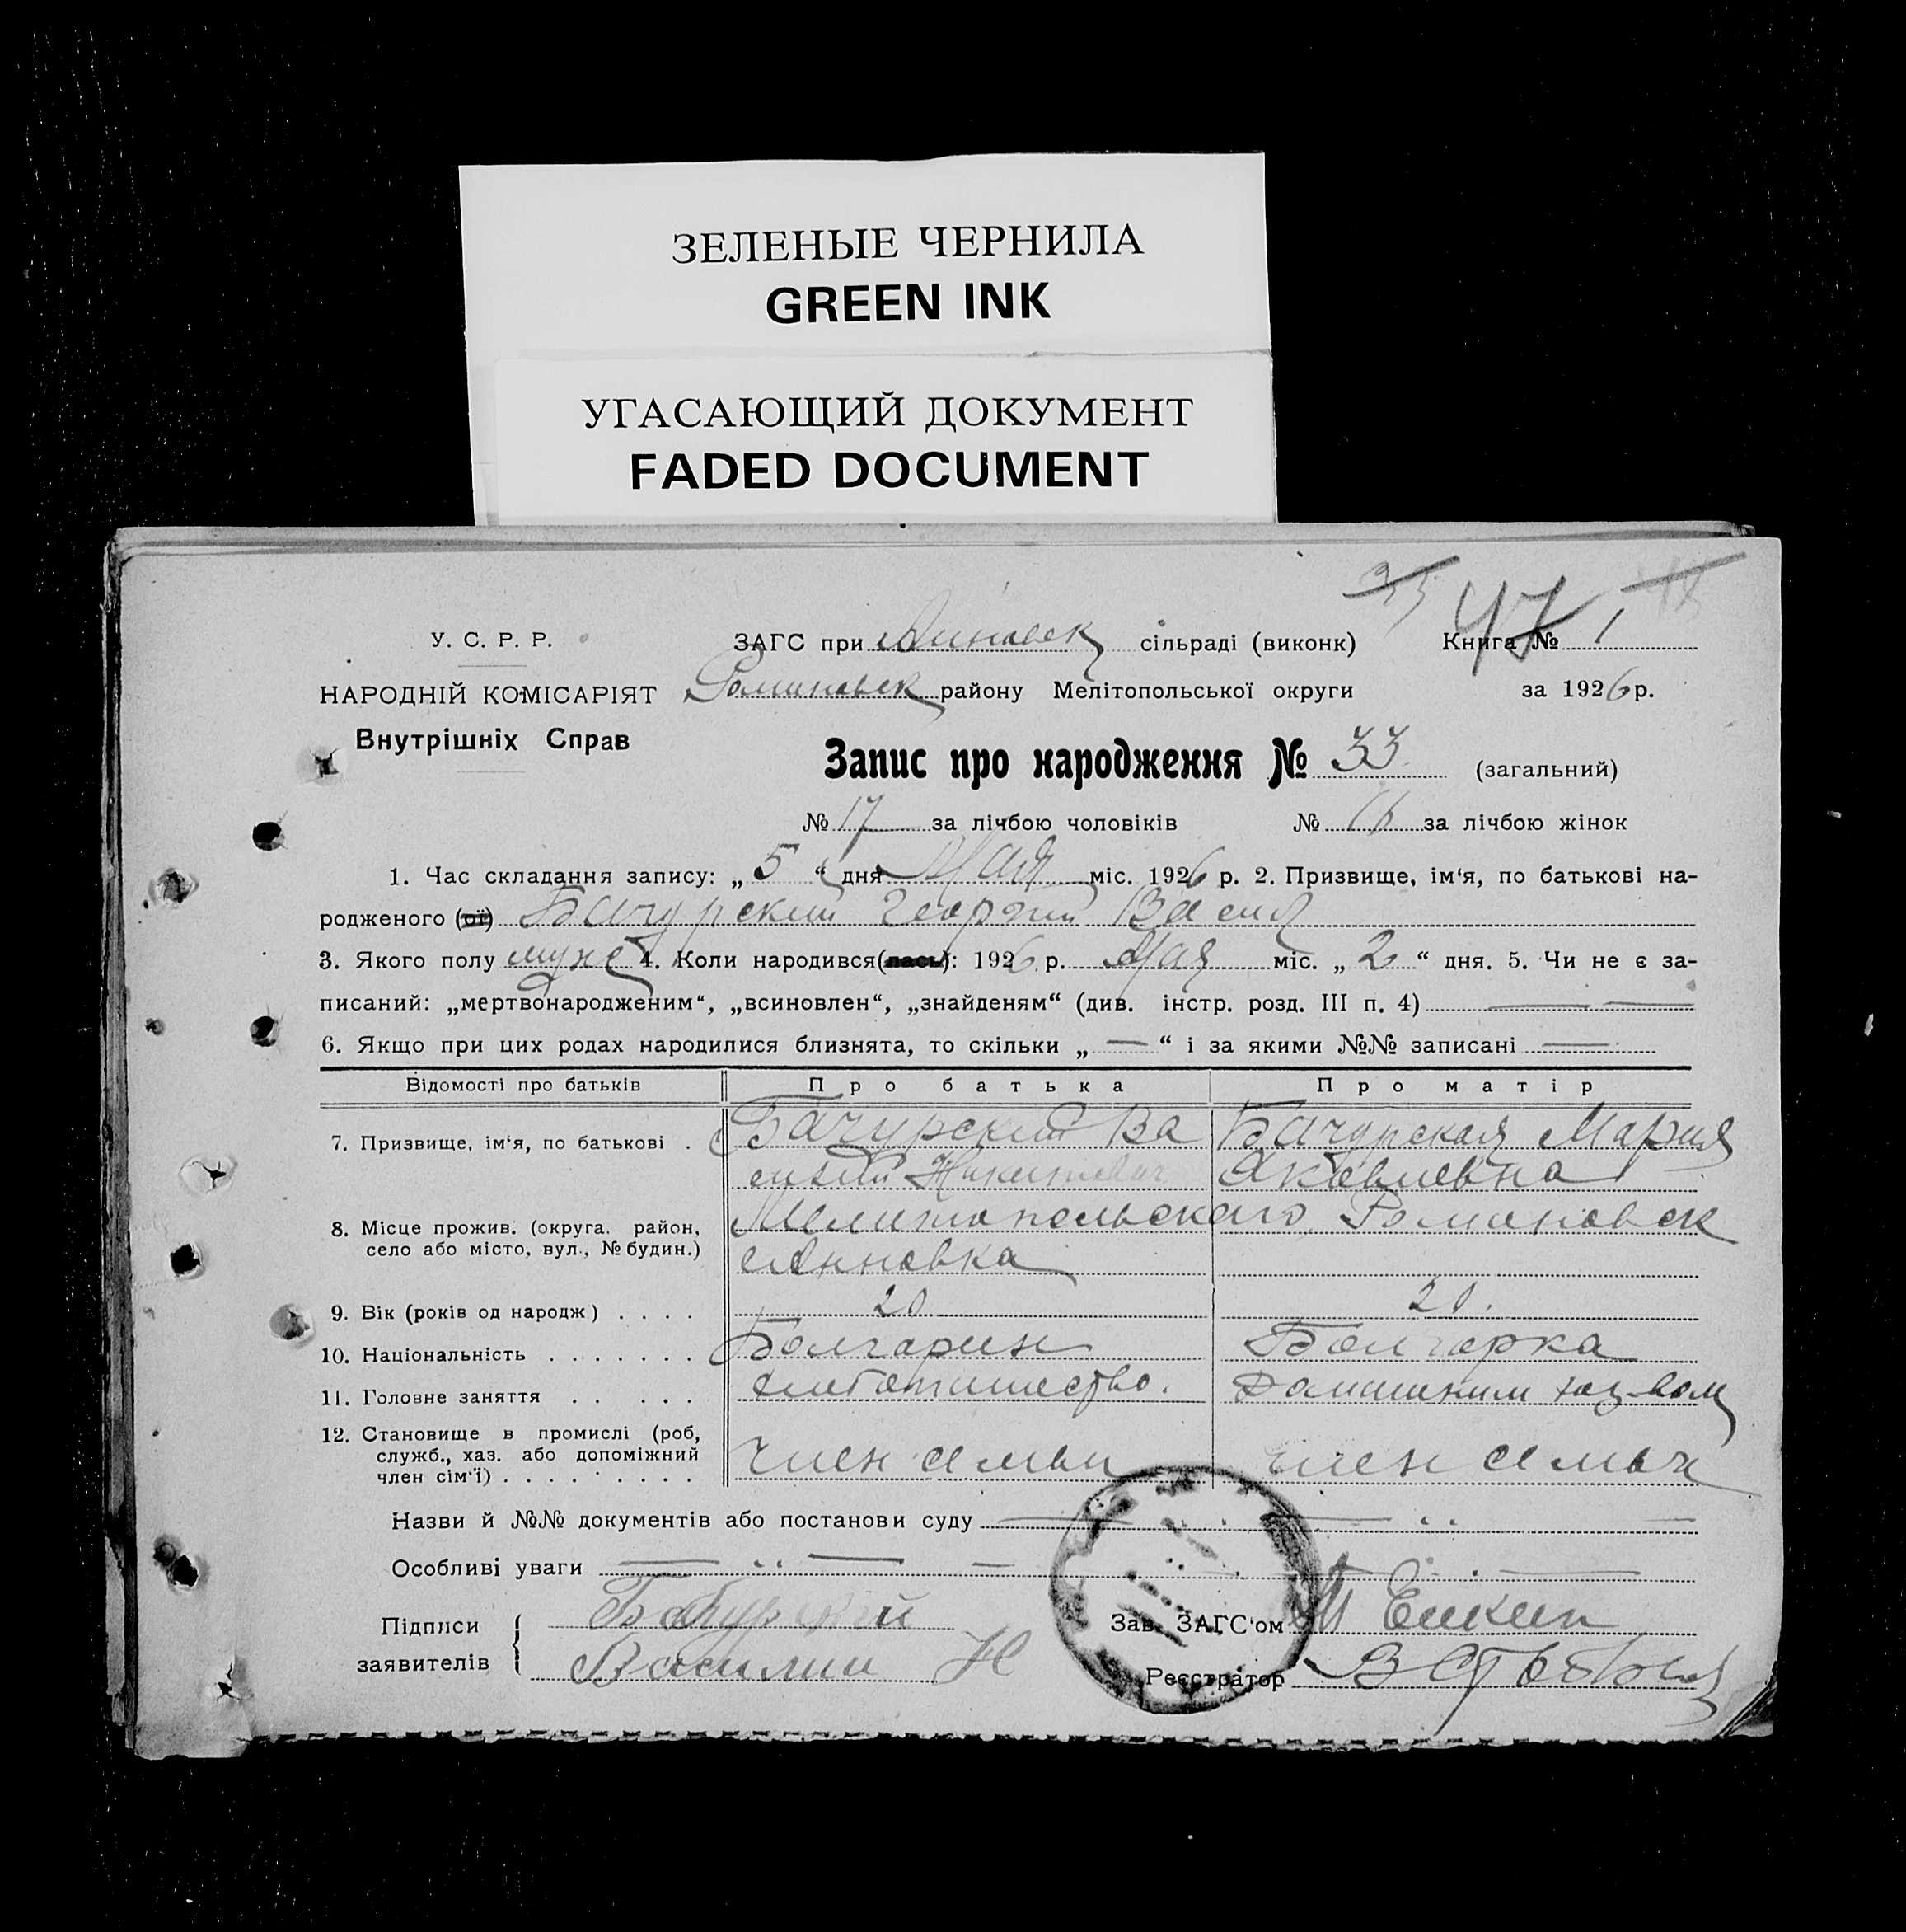 ЗЕЛЕНЫЕ ЧЕРНИЛА
GREEN INK
УГАСАЮЩИЙ ДОКУМЕНТ
FADED DOCUMENT
33 47 IX
У. С. Р. Р. ЗАГС при Анновск сільраді (виконк) Книга № 1
НАРОДНІЙ КОМІСАРІЯТ Романовск району Мелітопольської округи за 1926 р.
Внутрішніх Справ
Запис про народження № 33 (загальний)
№ 17 за лічбою чоловіків № 16 за лічбою жінок
1. Час складання запису: „ 5 “ дня Мая міс. 1926 р. 2. Призвище, ім‘я, по батькові на-
родженого (ої) Бачурский Георгий Васил
3. Якого полу муже 4. Коли народився(лась): 1926 р. Мая міс. „ 2 “ дня. 5. Чи не є за-
писаний: „мертвонародженим“, „всиновлен“, „знайденям“ (див. інстр. розд. III п. 4) —— ——
6. Якщо при цих родах народилися близнята, то скільки „ — “ і за якими №№ записані ——
Відомості про батьків Про батька Про матір
7. Призвище, ім‘я, по батькові . Бачурский Ва Бачурская Мария
силий Никитович Яковлевна
8. Місце прожив. (округа. район, Мелитопольского Романовск
село або місто, вул., № будин.) с Анновка
9. Вік (років од народж) . . . . 20 20.
10. Національність . . . . . . . Болгарин Болгарка
11. Головне заняття . . . . . хлебопашество. Домашним хоз-вом
12. Становище в промислі (роб,
служб., хаз. або допоміжний член семьи член семьи
член сім‘ї) . . . . . . . . .
Назви й №№ документів або постанови суду
Особливі уваги
Підписи Бачурский Зав. ЗАГС‘ом
заявителів Василий Н Реєстратор